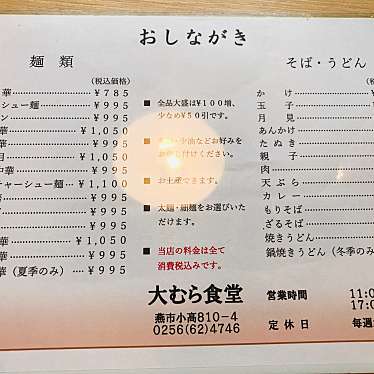 おしながき
麺 類
(税込価格)
華 ¥785
シュー麺 ¥995
ン ¥995
華 ¥1,050
華 ¥995
月 ¥1,050
中華 ¥995
ャーシュー麺 ¥1,100
¥995
¥995
華 ¥1,050
華 ¥995
華(夏季のみ) ¥995
■ 全品大盛は¥100増、
少なめ¥50引です。
油などお好みを
付けください。
■ お土産できます。
■ 太麺・細麺をお選びいた
だけます。
■ 当店の料金は全て
消費税込みです。
大むら食堂
燕市小高810−4
0256(62)4746
そば・うどん
かけ
玉子
月見
あんかけ
たぬき
親子
肉
天ぷら
カレー
もりそば
ざるそば
焼きうどん
鍋焼うどん(冬季のみ
営業時間 11:0
17:0
定休日 毎週